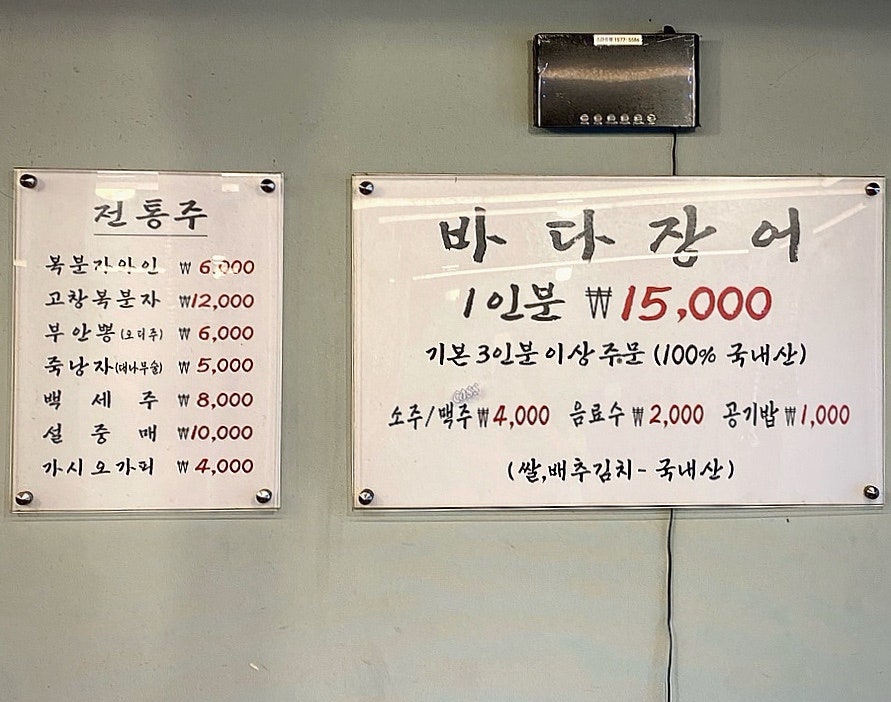 스마트렌 1577-5586
전통주
복분자와인 ₩ 6,000
고창복분자 ₩12,000
부안뽕(오디주) ₩ 6,000
죽낭자(대나무술) ₩ 5,000
백세주 ₩ 8,000
설중매 ₩10,000
가시오가피 ₩ 4,000
바다장어
1인분 ₩15,000
기본 3인분 이상 주문 (100% 국내산)
cass
소주/맥주 ₩4,000 음료수 ₩2,000 공기밥 ₩1,000
(쌀,배추김치-국내산)